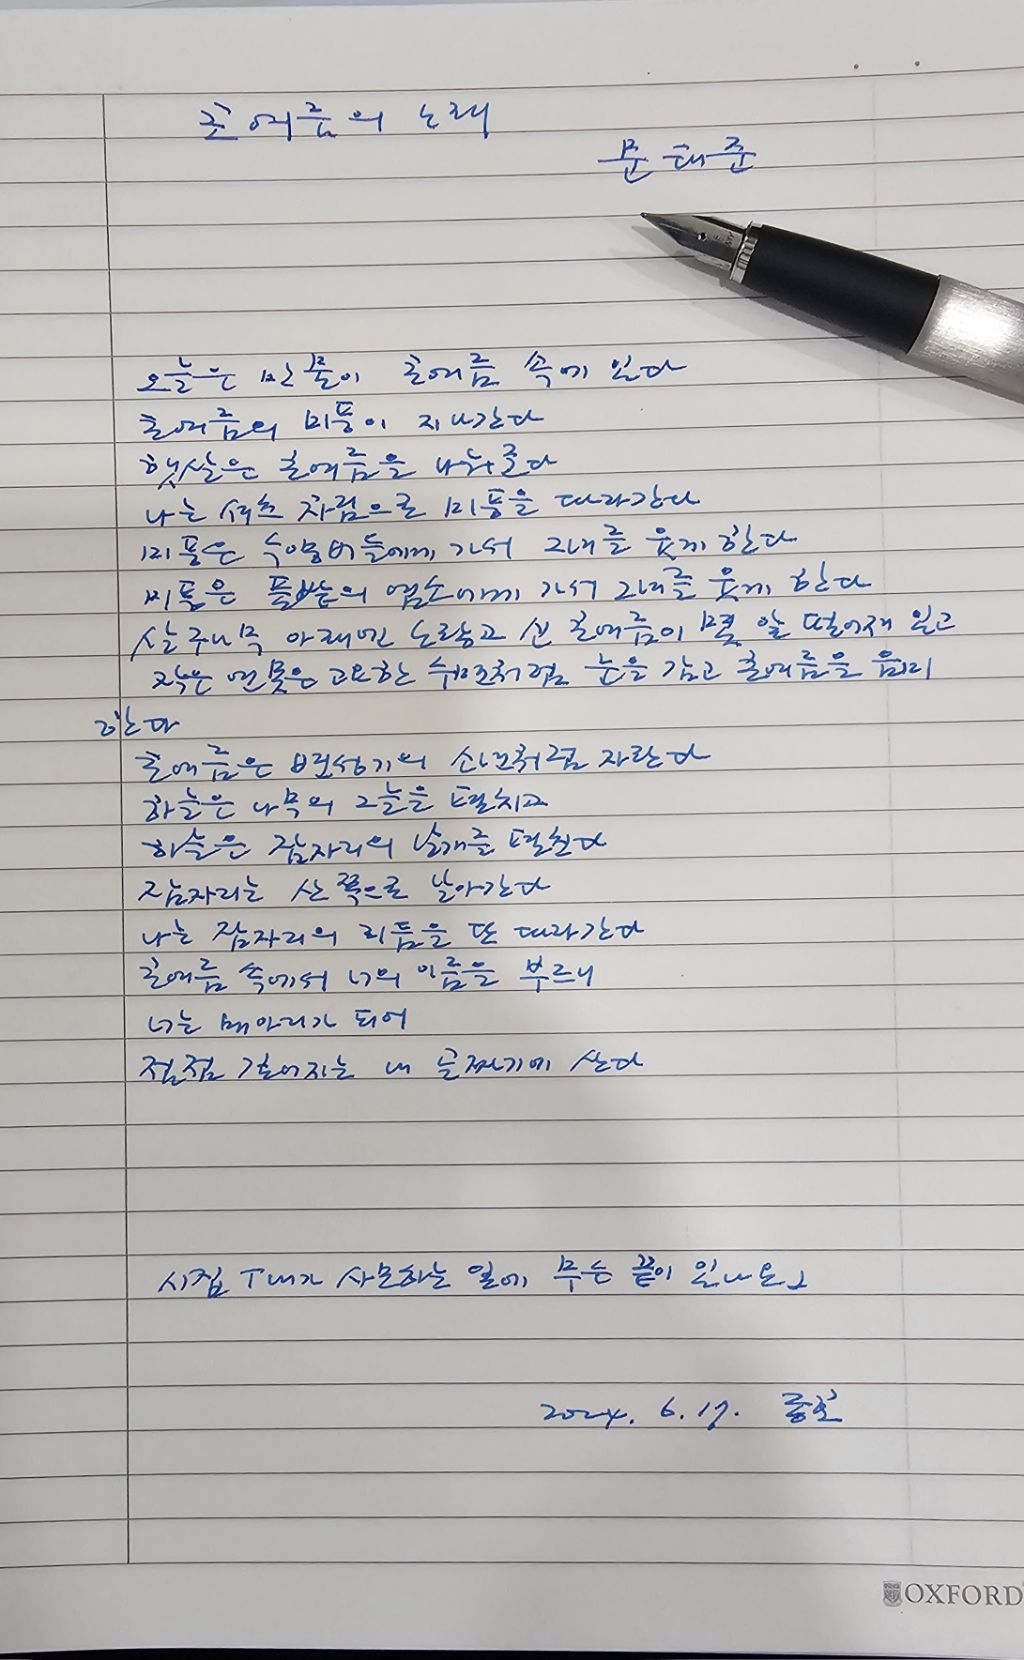 초여름의 노래
문태준
오늘은 만물이 초여름 속에 있다
초여름의 미풍이 지나간다
햇살은 초여름을 나눠준다
나는 셔츠 차림으로 미풍을 따라간다
미풍은 수양버들에게 가서 그녀를 웃게 한다
미풍은 풀밭의 염소에게 가서 그녀를 웃게 한다
살구나무 아래엔 노랗고 신 초여름이 몇 알 떨어져 있고
작은 연못은 고요한 수면처럼 눈을 감고 초여름을 음미
한다
초여름은 변성기의 소년처럼 자란다
하늘은 나무의 그늘을 펼치고
하늘은 잠자리의 날개를 펼친다
잠자리는 산 쪽으로 날아간다
나는 잠자리의 리듬을 또 따라간다
초여름 속에서 너의 이름을 부르니
너는 메아리가 되어
점점 깊어지는 내 골짜기에 산다
시집 「내가 사모하는 일에 무슨 끝이 있나요」
2024. 6. 17.
OXFORD